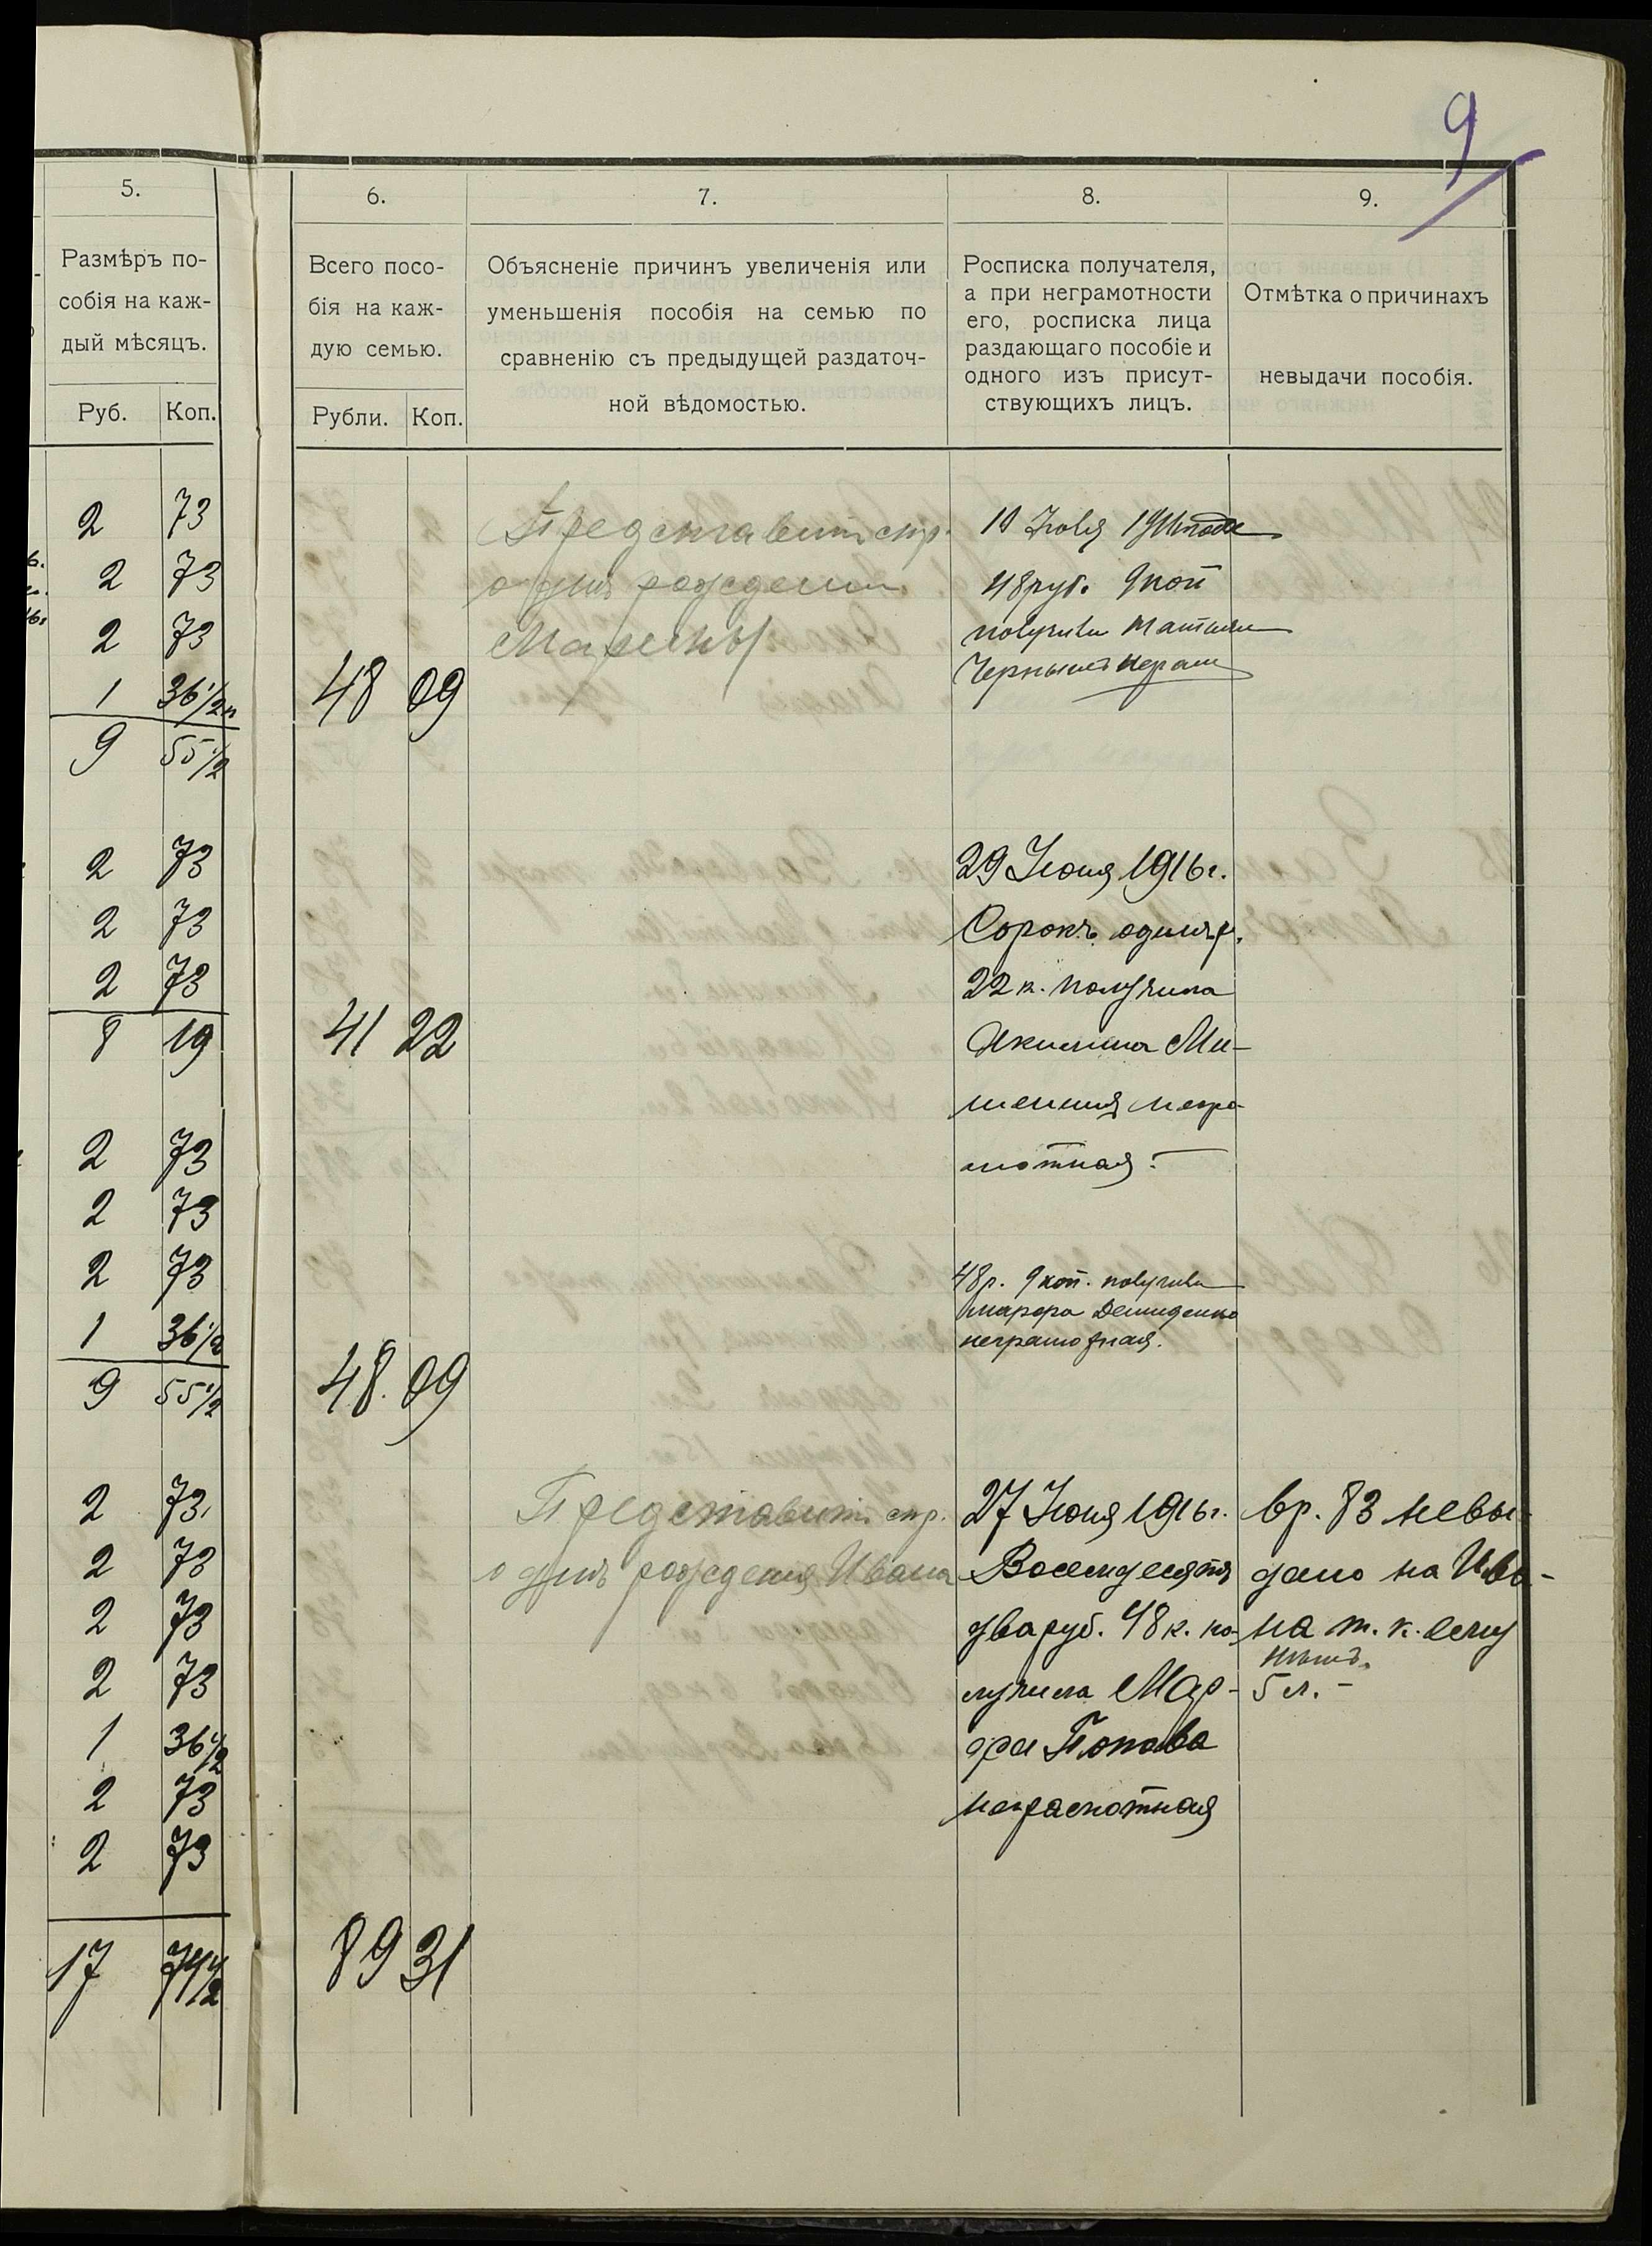 9
5.
6.
7.
8.
9.
Размѣръ по-
собія на каж-
дый мѣсяцъ.
Руб. Коп.
Всего посо-
бія на каж-
дую семью.
Рубли. Коп.
Объясненіе причинъ увеличенія или
уменьшенія пособія на семью по
сравненію съ предыдущей раздаточ-
ной вѣдомостью.
Росписка получателя,
а при неграмотности
его, росписка лица
раздающаго пособіе и
одного изъ присут-
ствующихъ лицъ.
Отмѣтка о причинахъ
невыдачи пособія.
2 73
2 73
2 73
1 36 1/2
9 55 1/2
48 09
Представит спр.
о дня рождения
Марины
10 Июля 1916 года
48 руб. 9 коп
получила
2 73
2 73
2 73
8 19
41 22
29 Июня 1916 г.
Сорокъ одинъ р.
22 к. получила
Акилина Ми-
шенина негра-
мотная.
2 73
2 73
2 73
1 36 1/2
9 55 1/2
48. 09
48 р. 9 коп. получила
Марфа Демиденко
неграмотная.
2 73
2 73
2 73
2 73
1 36 1/2
2 73
2 73
17 74 1/2
89 31
Представит спр.
о днѣ рождения Ивана
27 Июня 1916 г.
Восемдесятъ
два руб. 48 к. по-
лучила Мар-
фа Попова
неграмотная
6 р. 83 невы-
дано на Ива-
на т. к. ему
нѣтъ
5 л. -